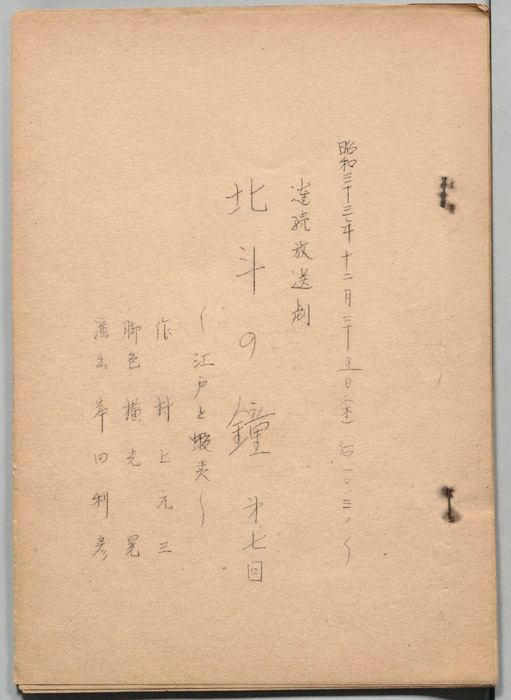 昭和三十三年十二月二十五日(木) 后一〇.三〇〜
連続放送劇
北斗の鐘 才七回
〜江戸と蝦夷〜
作 村上元三
脚色 横光晃
演出 岸田利彦